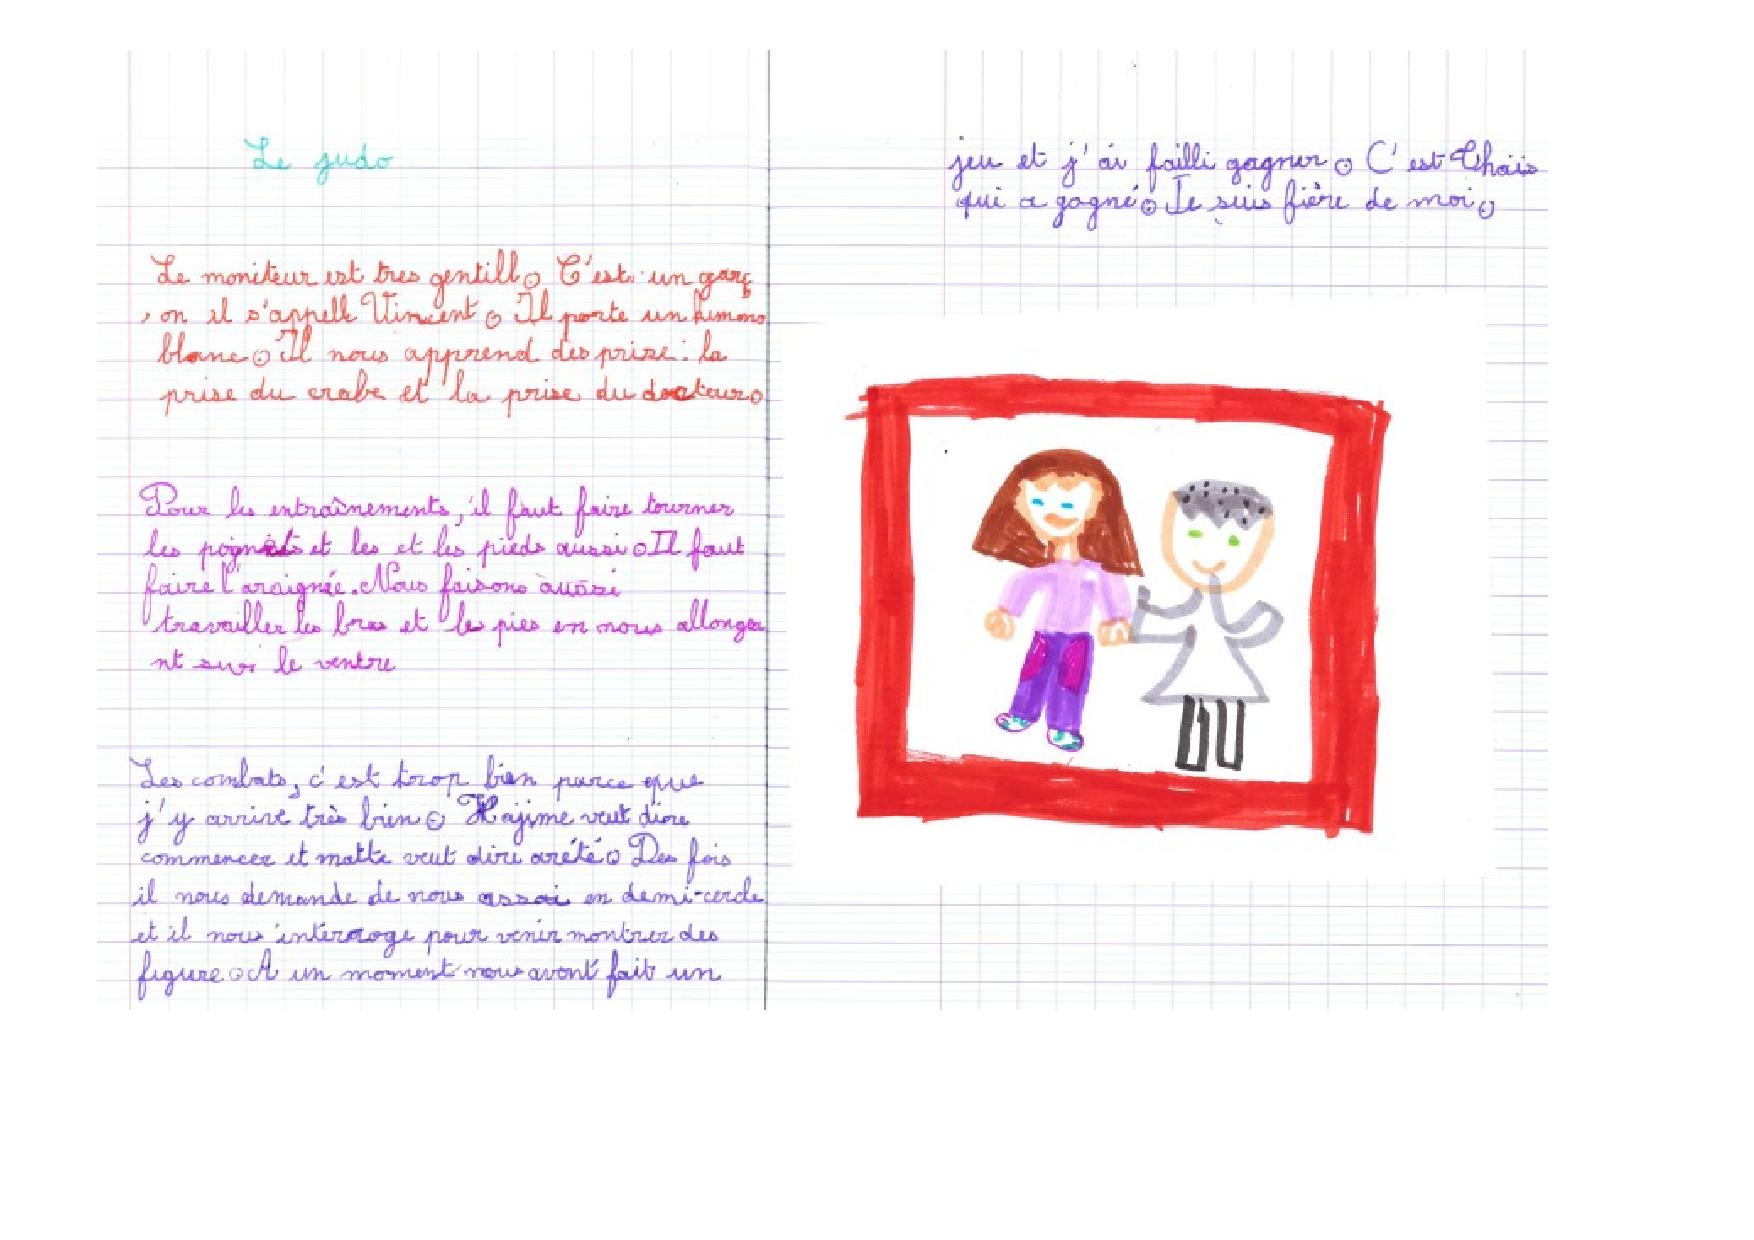 Le judo
Le moniteur est tres gentill. C'est un garç
, on il s'appell Vincent. Il porte un kimono
blanc. Il nous apprend des prise : la
prise du crabe et la prise du docteur.
Pour les entraînements, il faut faire tourner
les poignets et les et les pieds aussi. Il faut
faire l'araignée. Nous faisons aussi
travailler les bras et les pies en nous allongea
nt sur le ventre
Les combats, c'est trop bien parce que
j'y arrive très bien. Hajime veut dire
commencer et matte veut dire arété. Des fois
il nous demande de nous assoi en demi-cercle
et il nous interroge pour venir montrer des
figure. A un moment nous avont fait un
jeu et j'ai failli gagner. C'est Thaïs
qui a gagné. Je suis fière de moi.